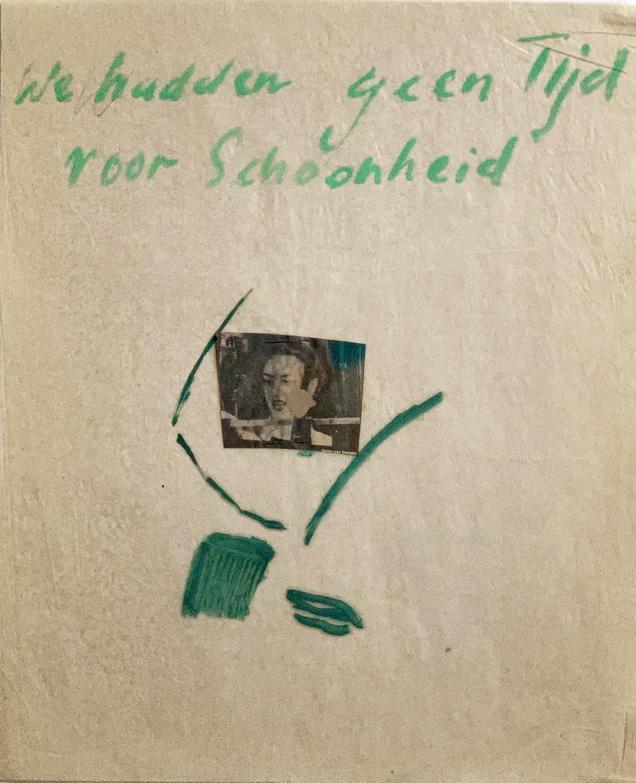 We hadden geen Tijd
voor Schoonheid